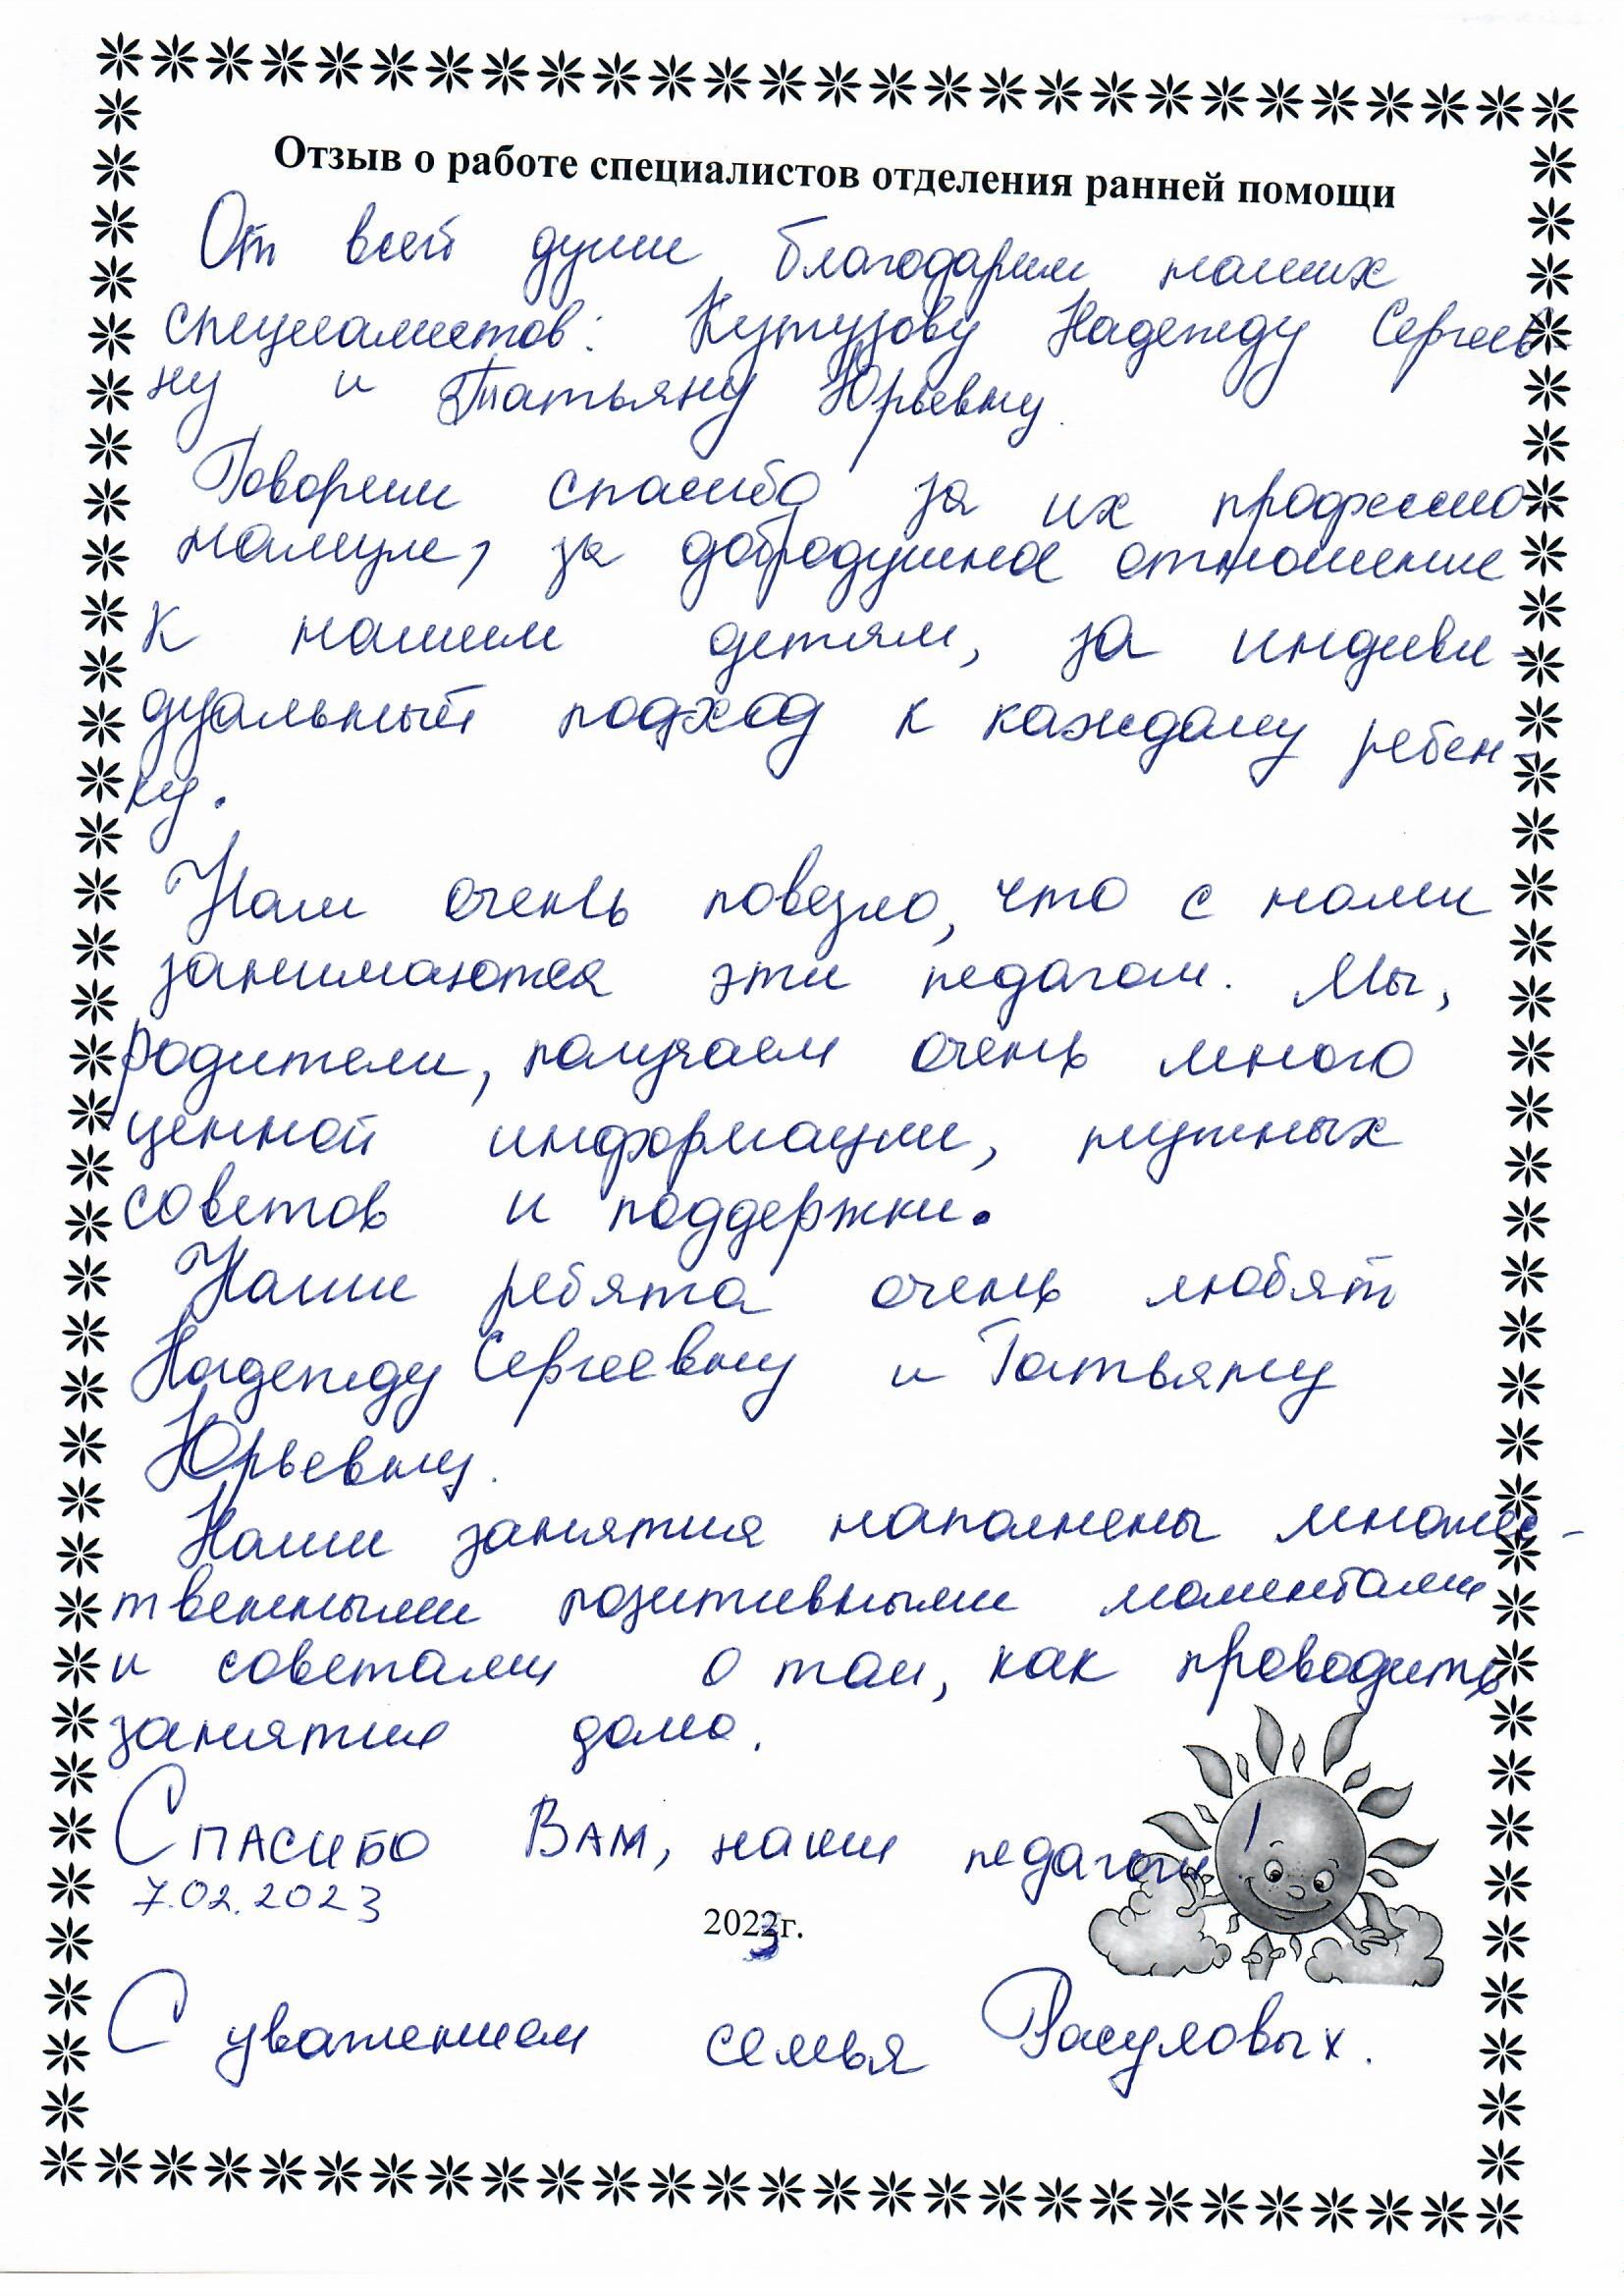 Отзыв о работе специалистов отделения ранней помощи
От всей души благодарим наших
специалистов: Кутузову Надежду Сергеев-
ну и Татьяну Юрьевну.
Говорим спасибо за их профессио-
нализм, за добродушное отношение
к нашим детям, за индиви-
дуальный подход к каждому ребен-
ку.
Нам очень повезло, что с нами
занимаются эти педагоги. Мы,
родители, получаем очень много
ценной информации, нужных
советов и поддержки.
Наши ребята очень любят
Надежду Сергеевну и Татьяну
Юрьевну.
Наши занятия наполнены множес-
твенными позитивными моментами
и советами о том, как проводить
занятия дома.
Спасибо Вам, наши педагоги!
7.02.2023
2023г.
С уважением семья Расуловых.